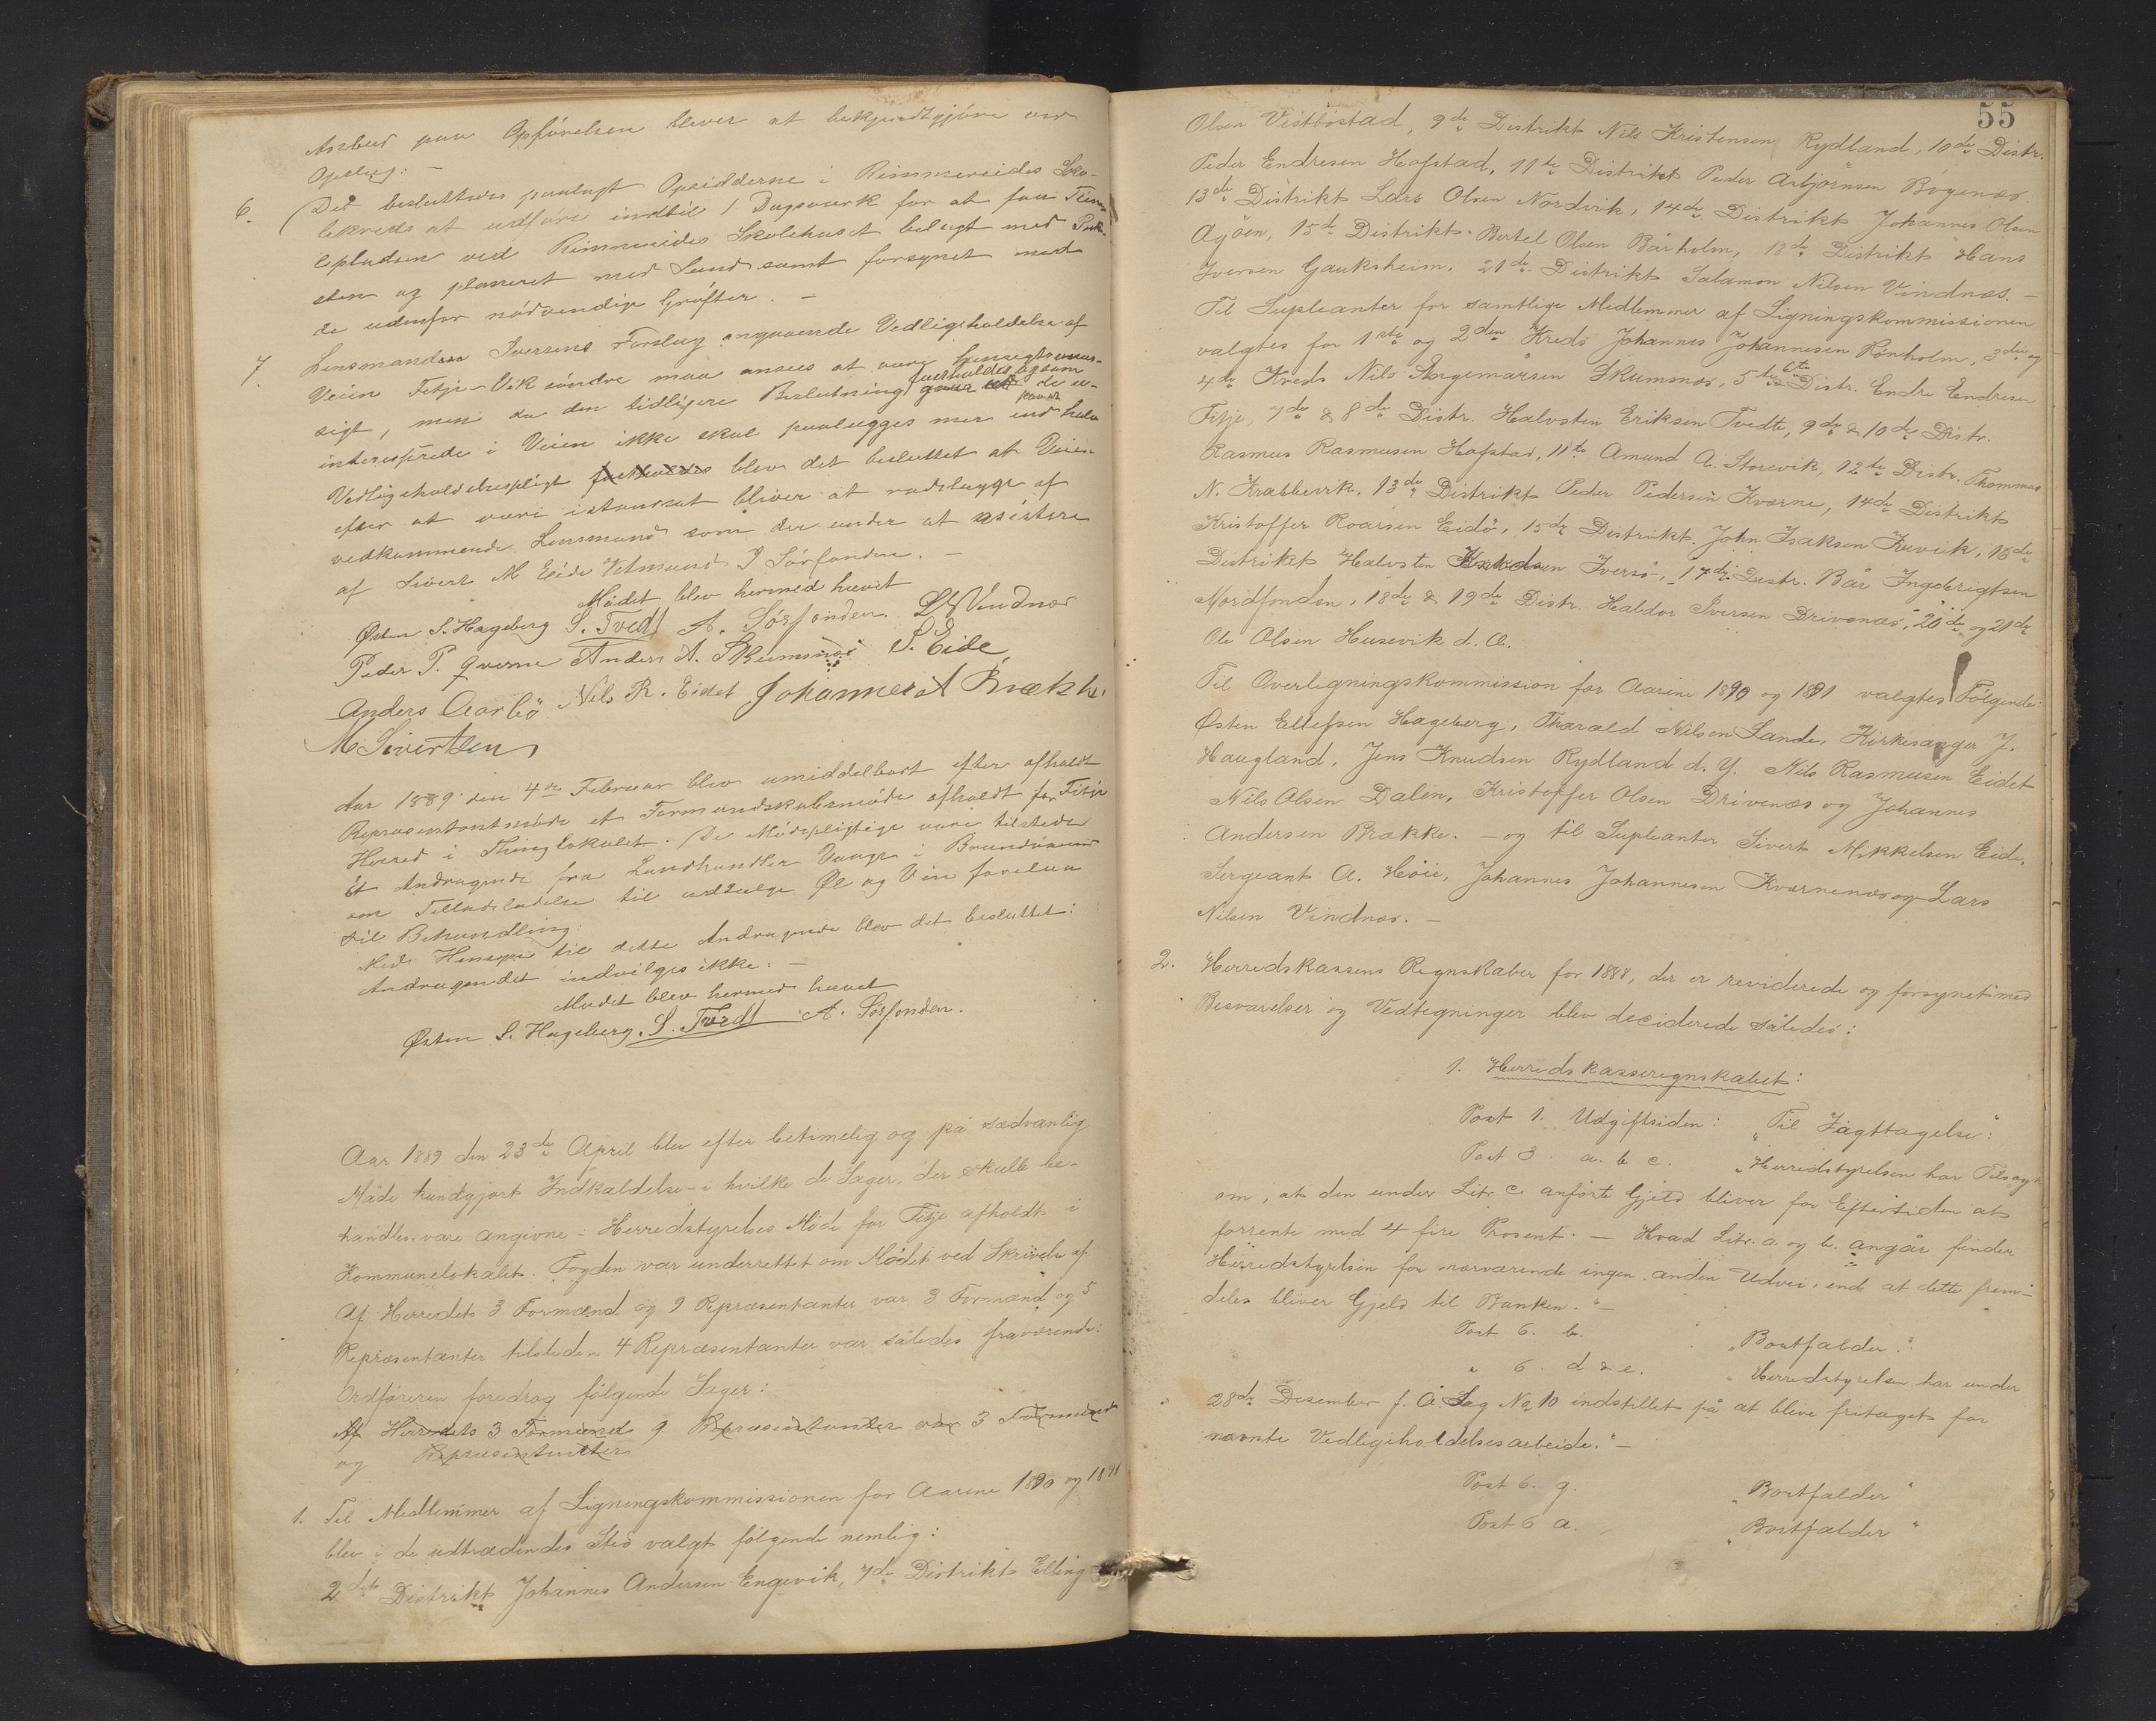 Anbud paa Opførelsen bliver at bekjendtgjøre ved
Opslag. –
6. Det besluttedes paalagt Opsidderne i Rimmereides Sko-
lekreds at udføre indtil 1 Dagsværk for at faa Tun-
lepladsen ved Rimmereides Skolehuset belagt med Puk-
sten og planeret med Sand samt forsynet med
de udenfor nødvendige Grøfter. –
7. Lensmand Iversens Forslag angaaende Vedligeholdelse af
Veien Fitje-Vik søndre maa ansees at være hensigtsmæs-
sigt, men da den tidligere Beslutning fastholdes ogsom gaar ud de u-
interesserede i Veien ikke skal paalægges mer end halv
Vedligeholdelsespligt fastholdes blev det besluttet at Veien
efter at være istandsat bliver at rodelægge af
vedkommende Lensmand som der under at assistere
af Sivert M Eide Velmund I Sørfonden. –
Mødet blev hermed hævet
Østen S. Hageberg S. Tvedt A. Sørfonden. L Vindnæs
Peder P. Qverne Anders A. Skumsnæs S. Eide
Anders Aarbø Nils R. Eidet Johannes A Brække
M. Sivertsen
Aar 1889 den 4de Februar blev umiddelbart efter afholdt
Repræsentantmøde et Formandskabsmøde afholdt for Fitje
Herred i Thinglokalet. De Mødepligtige vare tilstede
Et Andragende fra Landhandler Vaage i Brandasund
om Tilladeladelse til udsalge Øl og Vin forelaa
til Behandling.
Med Hensyn til dette Andragende blev det besluttet:
Andragendet indvilges ikke. –
Mødet blev hermed hævet
Østen S. Hageberg. S. Tvedt A. Sørfonden.
Aar 1889 den 23de April blev efter betimelig og på sædvanlig
Måde kundgjort Indkaldelse – i hvilke de Sager, der skulle be-
handles vare angivne – Herredstyrelses Møde for Fitje afholdt i
Kommunelokalet. Fogden var underrettet om Mødet ved Skrivelse af
Af Herredets 3 Formænd og 9 Repræsentanter var 3 Formænd og 5
Repræsentanter tilstede. 4 Repræsentanter var således fraværende.
Ordføreren foredrog følgende Sager:
Af Herredets 3 Formænd 9 Repræsentanter var 3 Formænd
og Repræsentanter
1. Til Medlemmer af Ligningskommissionen for Aarene 1890 og 1891
blev i de udtrædendes Sted valgt følgende nemlig:
2det Distrikt Johannes Andersen Engevik, 7de Distrikt Elling
55
Olsen Vestbøstad, 9de Distrikt Nils Kristensen Rydland, 10de Distr.
Peder Endresen Hofstad, 11te Distrikt Peder Asbjørnsen Bøgenæs.
13de Distrikt Lars Olsen Nordvik, 14de Distrikt Johannes Olsen
Agøen, 15de Distrikt Bertel Olsen Bårholm, 18de Distrikt Hans
Iversen Gauksheim. 21de Distrikt Salamon Nilsen Vindnæs. –
Til Supleanter for samtlige Medlemmer af Ligningskommissionen
valgtes for 1ste og 2den Kreds Johannes Johannesen Rønholm, 3die og
4de Kreds Nils Angemarsen Skumsnæs, 5te 6te Distr. Endre Endresen
Fitje, 7de & 8de Distr. Halvsten Eriksen Tvedte, 9de & 10de Distr.
Rasmus Rasmusen Hofstad, 11te Amund A. Storevik, 12te Distr. Thommas
N. Krabbevik. 13de Distrikt Peder Pedersen Kværne, 14de Distrikt
Kristoffer Roarsen Eidø, 15de Distrikt. John Isaksen Kuvik, 16de
Distrikt Halvsten Knudsen Iversø, 17de Distr. Bår Ingebrigtsen
Nordfonden, 18de & 19de Distr. Haldor Iversen Drivenæs, 20de og 21de
Ole Olsen Husevik d. æ.
Til Overligningskommission for Aarene 1890 og 1891 valgtes Følgende:
Østen Ellefsen Hageberg, Tharald Nilsen Sande, Kirkesanger J.
Haugland, Jens Knudsen Rydland d. y. Nils Rasmusen Eidet
Nils Olsen Dalen, Kristoffer Olsen Drivenæs og Johannes
Andersen Brække. – og til Supleanter Sivert Mikkelsen Eide,
Sergeant A. Høie, Johannes Johannesen Kværnenæs og Lars
Nilsen Vindnæs. –
2. Herredskassens Regnskaber for 1888, der er reviderede og forsynet med
Besvarelser og Vedtegninger blev deciderede således:
1. Herredskasseregnskabet:
Post 1. Udgiftsiden: "Til Iagttagelse":
Post 3. a. b. c. "Herredstyrelsen har Tilsagn
om, at den under Litr. c. anførte Gjeld bliver for Eftertiden at
forrente med 4 fire Prosent. – Hvad Litr. a. og b. angår finder
Herredstyrelsen for nærværende ingen anden Udvei, end at dette frem-
deles bliver Gjeld til Banken. "–
Post 6. b. "Bortfalder."
" 6. d & e. "Herredstyrelsen har under
28de Desember f. Å. Sag No 10 indstillet på at bleve fritaget for
nævnte Vedligeholdelsesarbeide." –
Post 6. g. "Bortfalder"
Post 6 a. "Bortfalder"